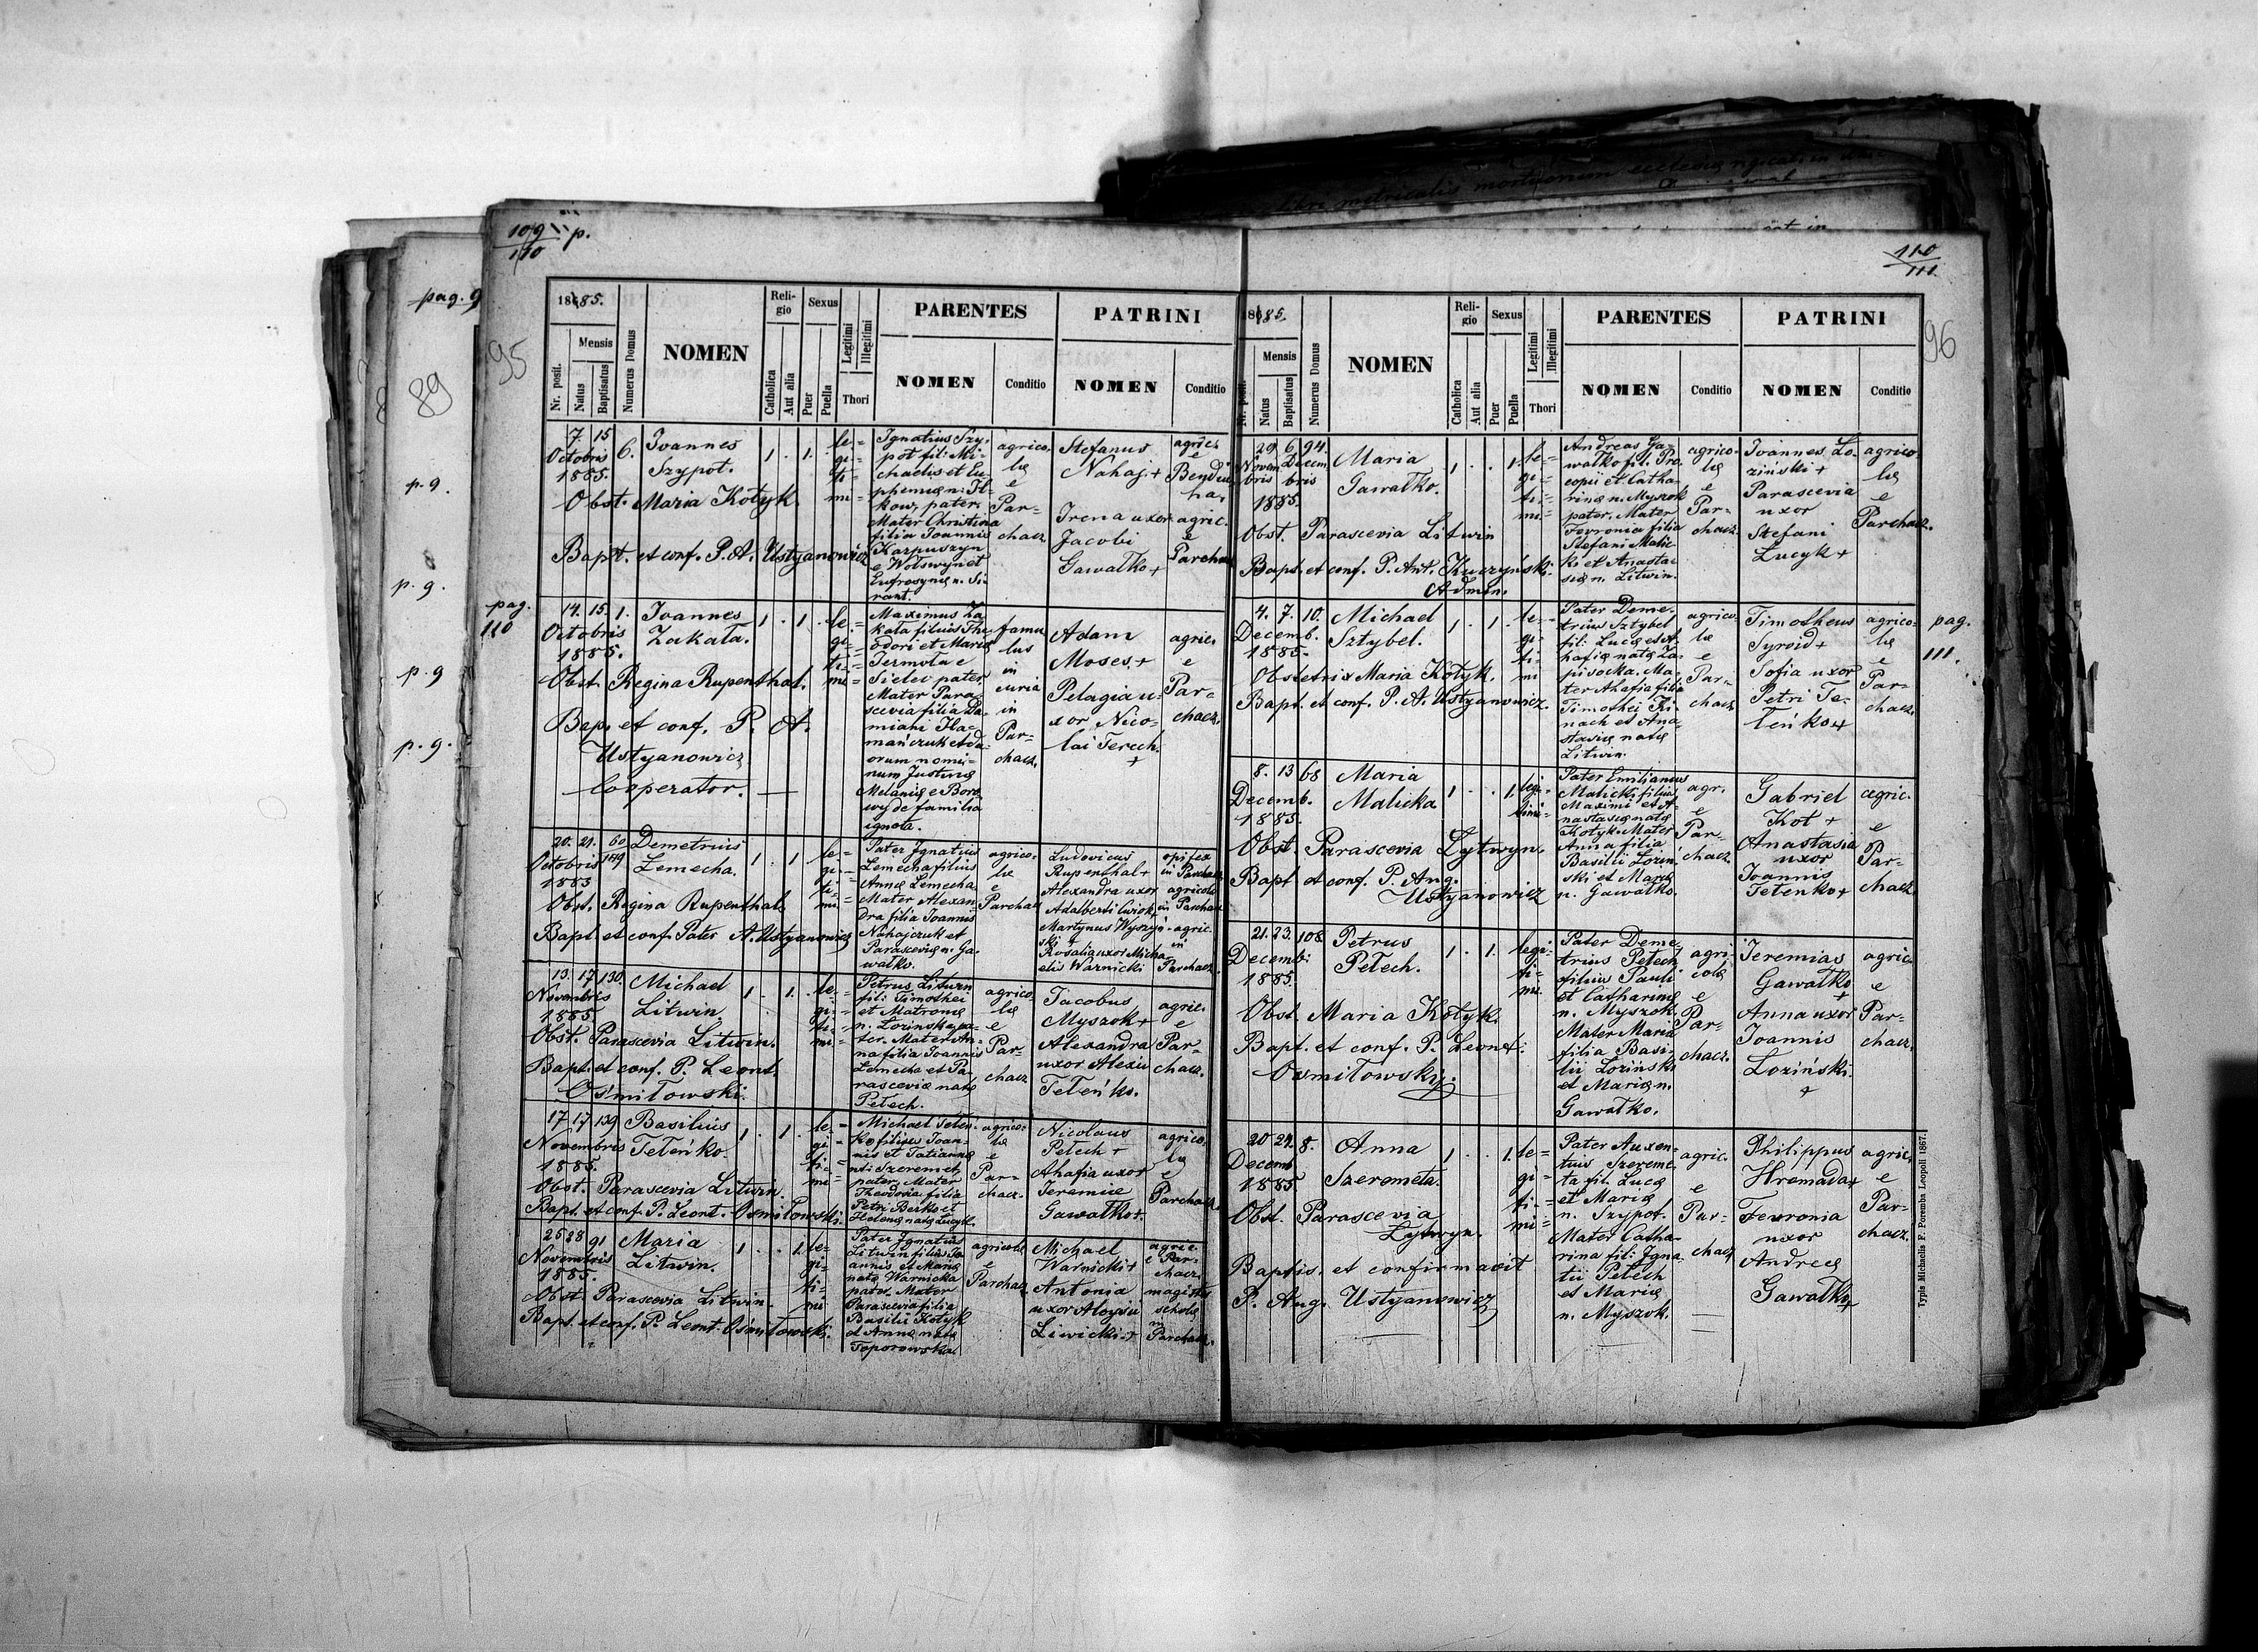 109 p.
110
pag. 9
89
p. 9.
p. g.
p. g
p. g.
95
pag.
110
1885.
Nr. posit.
Mensis
Natus
Baptisatus
Numerus Domus
NOMEN
Religio
Catholica
Aut alia
Sexus
Puer
Puella
Legitimi
Illegitimi
Thori
PARENTES
NOMEN
Conditio
PATRINI
NOMEN
Conditio
7. 15
Octobris
1885.
6.
Ioannes
Szypot.
1 . 1 .
le=
gi=
ti=
mi=
Ignatius Szy-
pot fil: Mi-
chaelis et Eu-
phemię n: Il-
kow, pater.
Mater Christina
filia Ioannis
Karpuszyn
e Wolswyn et
Eufrosynę n. Si-
rant.
agrico-
lę
e
Par=
chacz
Stefanus
Nahaj +
Irena uxor
Jacobi
Gawałko +
agric.
e
Bendiu
ha.
agric.
e
Parchacz
Obst. Maria Kotyk.
Bapt. et conf. P. A. Ustyanowicz
14. 15.
Octobris
1885.
1.
Ioannes
Zakała.
1 . 1 .
le=
gi=
ti=
mi=
Maximus Za-
kała filius The-
odori et Marię
Jermoła e
Sielec pater
Mater Para-
scevia filia Da-
miani Ha-
mańczuk et du-
orum nomi-
num Justinę
Melanię e Boro
wy de familia
ignota.
famu
lus
in
curia
in
Par-
chacz.
Adam
Moses +
Pelagia u-
xor Nico-
lai Terech.
+
agric.
e
Par-
chacz.
Obst. Regina Rupenthal.
Bap. et conf. P. A.
Ustyanowicz
Cooperator. —
20. 21.
Octobris
1885
60
149
Demetrius
Lemecha.
1 . 1
le=
gi=
ti=
mi=
Pater Ignatius
Lemecha filius
Annę Lemecha
Mater Alexan-
dra filia Ioannis
Nahajczuk et
Parascevię n. Ga-
wałko.
agrico-
lę
e
Parchacz
Ludovicus
Rupenthal +
Alexandra uxor
Adalberti Cwiok +
Martynus Wyszyń-
ski +
Rosalia uxor Micha-
elis Warnicki
opifex
in Parchacz
agricola
in Parchacz
agric.
in
Parchacz.
Obst. Regina Rupenthal
Bapt. et conf. Pater A. Ustyanowicz
13. 17
Novembris
1885.
130.
Michael
Litwin.
1 . 1 .
le=
gi=
ti=
mi=
Petrus Litwin
fil: Timothei
et Matronę
n. Łozinska pa-
ter. Mater An-
na filia Ioannis
Lemecha et Pa-
rascevię natę
Petech.
agrico-
lę
e
Par-
chacz
Jacobus
Myszok +
Alexandra
uxor Alexii
Teteńko.
agric.
e
Par-
chacz.
Obst. Parascevia Litwin.
Bapt. et conf. P. Leont.
Ośmiłowski.
17 17
Novembris
1885.
139
Basilius
Teteńko.
1 . 1 .
le=
gi=
ti=
mi=
Michael Teten-
ko filius Ioan-
nis et Tatiannę
n: Szeremet
pater, Mater
Theodosia filia
Petri Berko et
Helenę natę Lucyk.
agrico-
lę
e
Par-
chacz.
Nicolaus
Petech +
Ahafia uxor
Jeremiæ
Gawałko +.
agrico-
lę
e
Parchacz.
Obst. Parascevia Litwin.
Bapt. et conf. P. Leont. Osmiłowski.
25 28
Novembris
1885.
91
Maria
Litwin.
1 . . 1.
le-
gi-
ti-
mi
Pater Ignatius
Litwin filius Io-
annis et Marię
natę Warnicka
pater. Mater
Parascevia filia
Basilii Kotyk
et Annę natę
Toporowska.
agricolę
e
Parchacz
Michael
Warnicki +
Antonia
uxor Aloysii
Liwicki. +
agric.
e Par-
chacz.
magistri
scholę
in
Parchacz.
Obst. Parascevia Litwin.
Bapt. et conf. P. Leont. Ośmiłowski.
110
111.
96
pag.
111.
1885.
Nr. posit.
Mensis
Natus
Baptisatus
Numerus Domus
NOMEN
Religio
Catholica
Aut alia
Sexus
Puer
Puella
Legitimi
Illegitimi
Thori
PARENTES
NOMEN
Conditio
PATRINI
NOMEN
Conditio
29. 6.
Novem Decem
bris bris
1885.
94.
Maria
Gawałko.
1 . . 1.
le=
gi=
ti=
mi=
Andreas Ga-
wałko fil. Pro
copii et Catha-
rinę n. Myszok
pater. Mater
Fevronia filia
Stefani Malic-
ki et Anasta-
się n. Litwin.
agrico-
lę
e
Par-
chacz.
Ioannes Ło-
ziński +
Parascevia
uxor
Stefani
Lucyk +
agrico-
lę
e
Parchacz.
Obst. Parascevia Litwin
Bapt. et conf. P. Ant. Kuczyński.
Admin.
4. 7.
Decemb.
1885.
10.
Michael
Sztybel.
1 . 1 .
le-
gi-
ti-
mi
Pater Deme-
trius Sztybel
fil: Lucę et A-
hafię natę Za-
pisocka. Ma-
ter Ahafia filia
Timothei Ki-
nach et Ana-
stasię natę
Litwin.
agrico-
lę
e
Par-
chacz
Timotheus
Syroid +
Sofia uxor
Petri Te-
teńko +
agrico-
lę
e
Par-
chacz.
Obstetrix Maria Kotyk.
Bapt. et conf. P. A. Ustyanowicz.
8. 13
Decemb.
1885.
68
Maria
Malicka
1 . . 1.
legi-
timi-
Pater Emilianus
Malicki filius
Maximi et A-
nastasię natę
Kotyk. Mater
Anna filia
Basilii Łozin-
ski et Marię
n. Gawałko.
agr.
e
Par-
chacz.
Gabriel
Kot +
Anastasia
uxor
Ioannis
Tetenko +
agric.
e
Par-
chacz.
Obst. Parascevia Lytwyn.
Bapt et conf. P. Aug.
Ustyanowicz
21. 23.
Decemb:
1885.
108.
Petrus
Petech.
1 . 1.
legi-
ti=
mi-
Pater Deme-
trius Petech
filius Pauli
et Catharinę
n. Myszok.
Mater Maria
filia Basi-
lii Łoziński
et Marię n.
Gawałko.
agri-
colę
e
Par-
chacz.
Jeremias
Gawałko
+
Anna uxor
Ioannis
Łoziński.
+
agric.
e
Par-
chacz.
Obst. Maria Kotyk.
Bapt. et conf. P. Leont.
Osmiłowskij.
20 24.
Decemb.
1885.
8.
Anna
Szeremeta.
1 . . 1.
le=
gi=
ti=
mi=
Pater Auxen-
tius Szereme-
ta fil. Lucę
et Marię
n. Szypot.
Mater Catha-
rina fil: Igna-
tii Petech
et Marię
n. Myszok.
agric.
e
Par-
chacz
Philippus
Hromada +
Fevronia
uxor
Andreę
Gawałko +
agric.
e
Par-
chacz.
Obst. Parascevia
Lytwyn.
Baptis. et confirmavit
P. Aug. Ustyanowicz
Typis Michaelis F. Poremba Leopoli 1867.